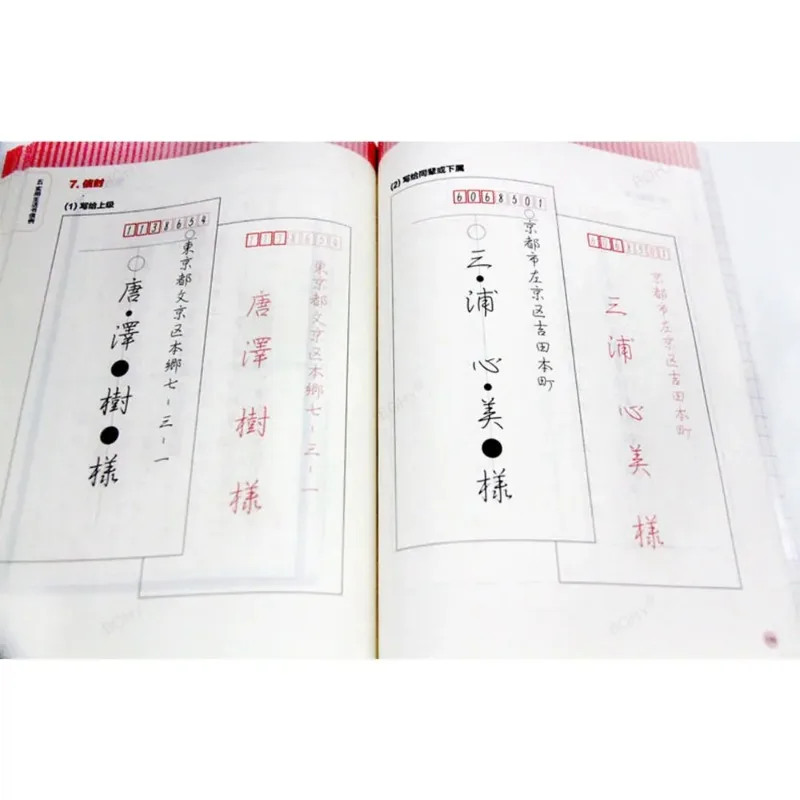 五 实用生活书信例
7. 信封
(1) 写给上级
1138654
東京都文京区本郷七-三-一
唐澤樹様
1138654
東京都文京区本郷七-三-一
唐澤樹様
(2) 写给同辈或下属
6068501
京都市左京区吉田本町
三浦 心美 様
6068501
京都市左京区吉田本町
三浦心美様